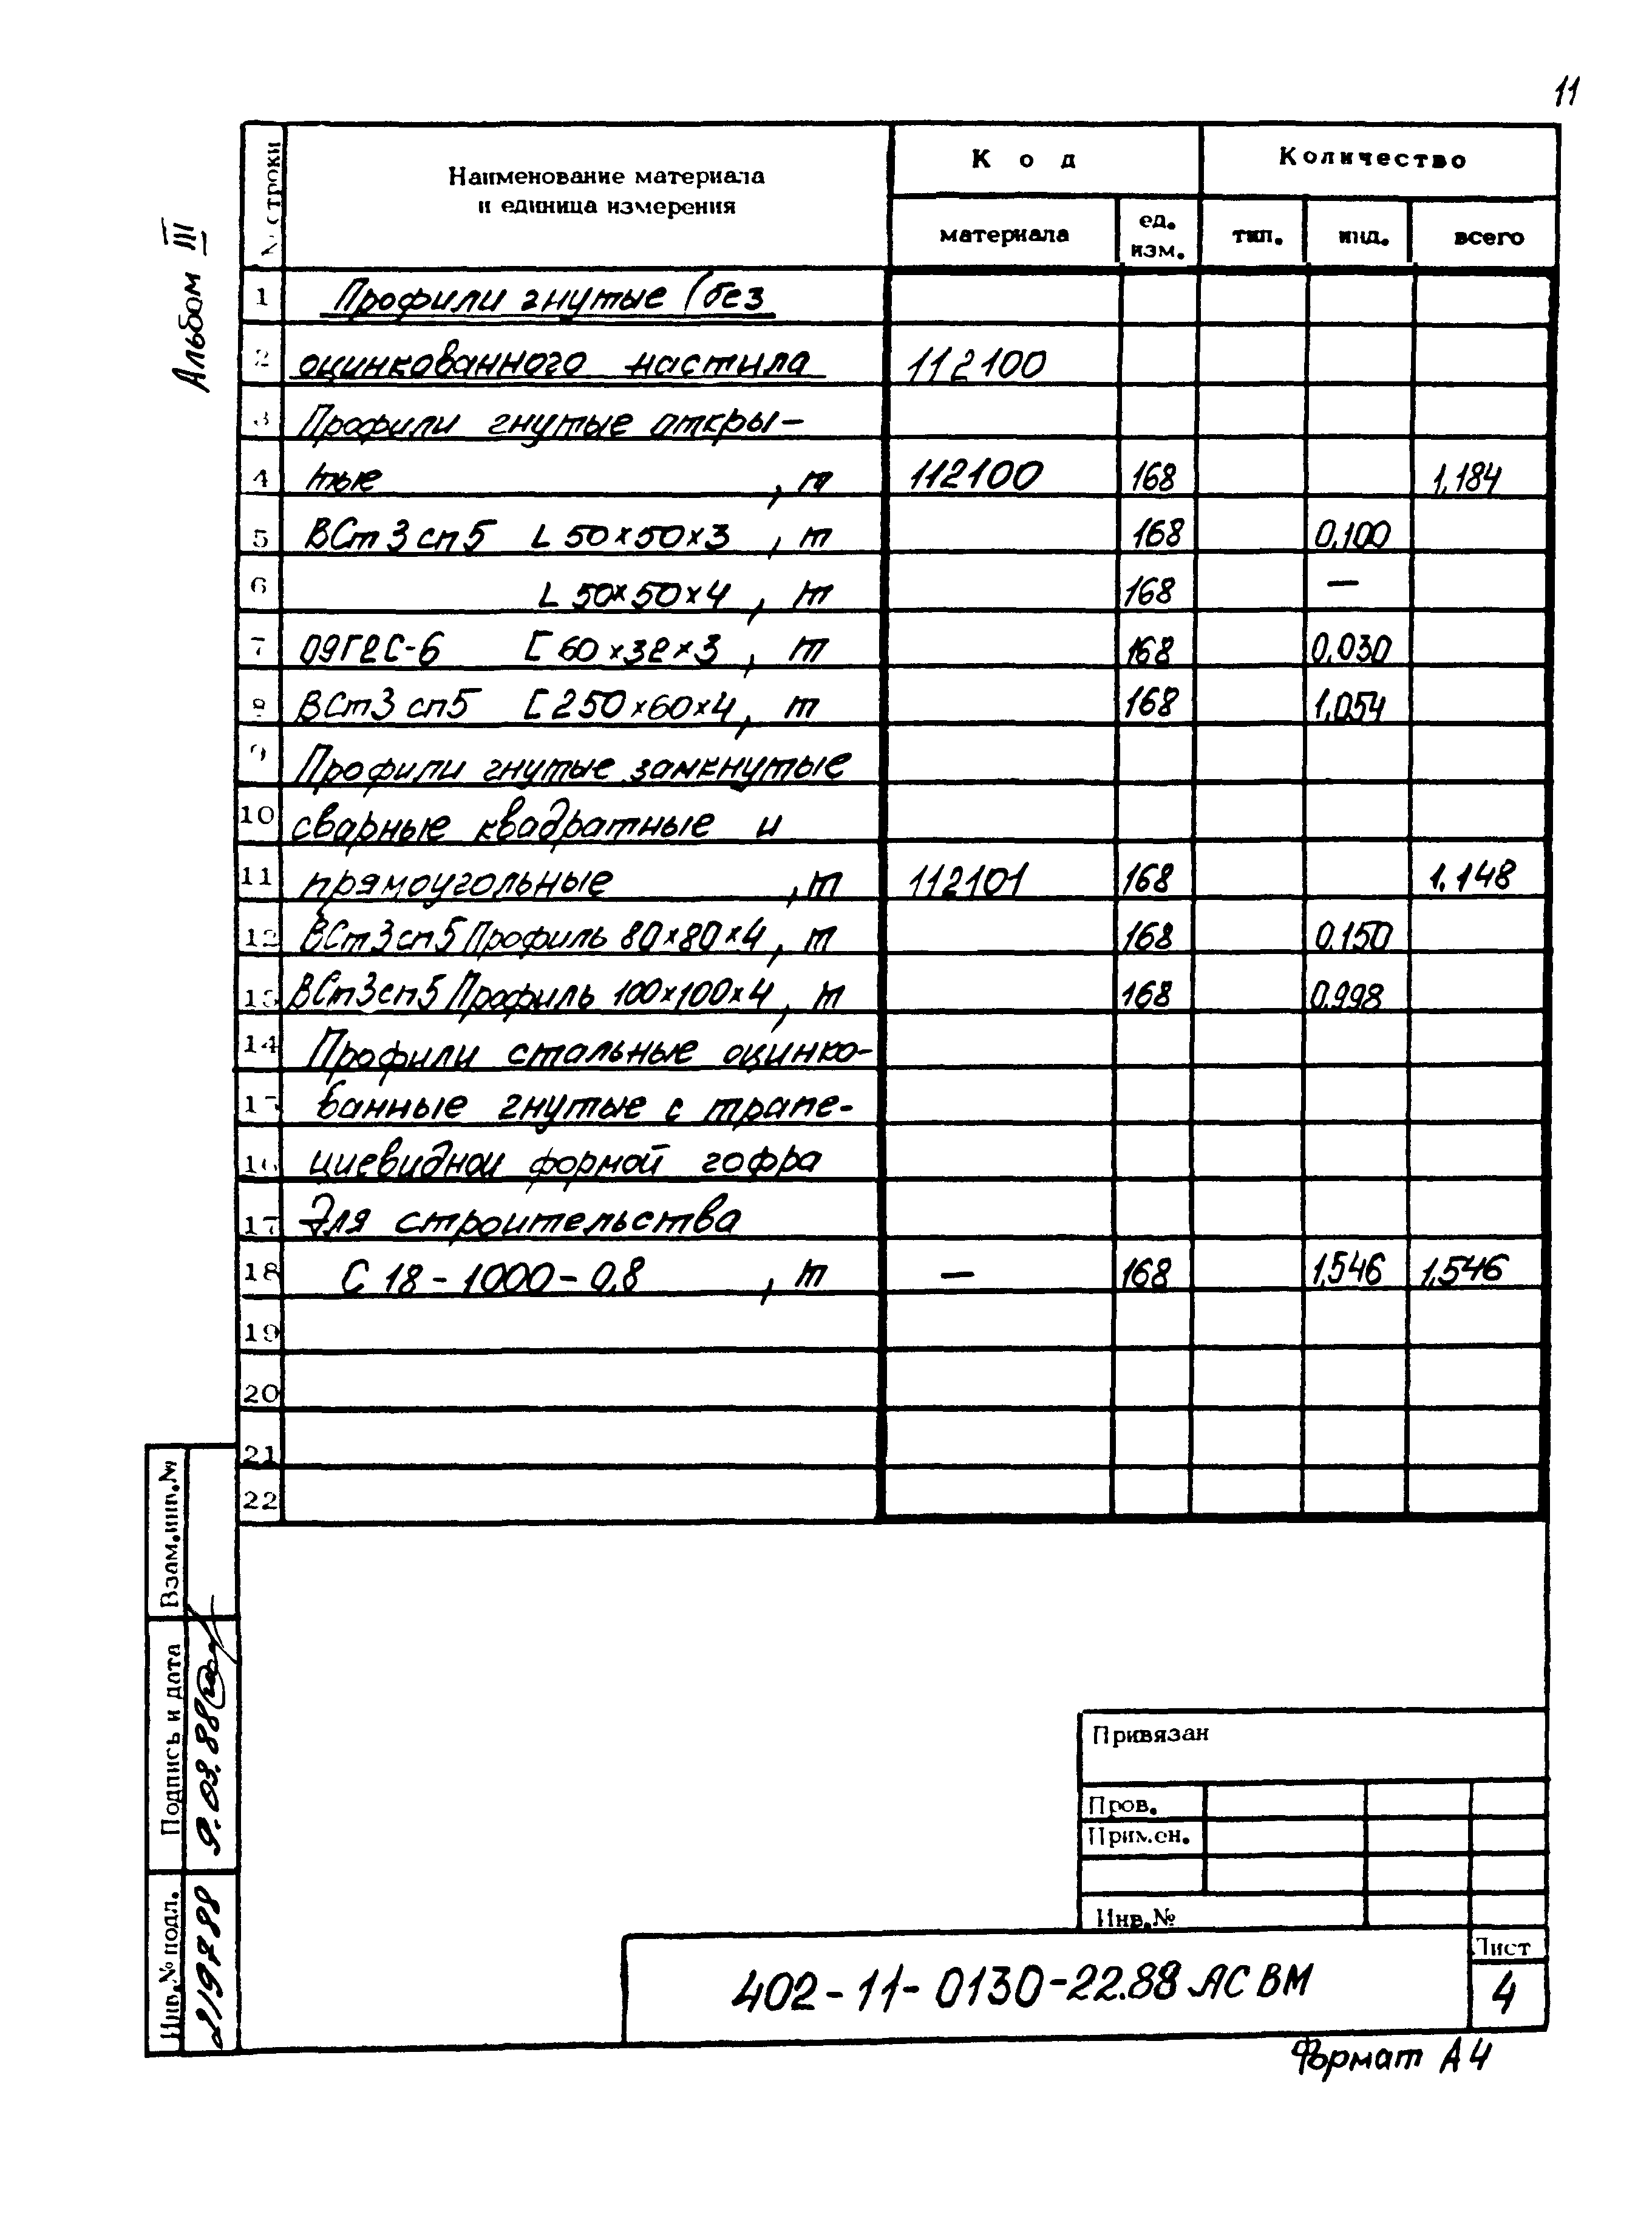 11
Альбом III
№ строки
Наименование материала
и единица измерения
Код
Количество
материала
ед.
изм.
тип.
инд.
всего
1 Профили гнутые (без
2 оцинкованного настила 112100
3 Профили гнутые откры-
4 тые , т 112100 168 1,184
5 ВСт3сп5 L 50×50×3 , т 168 0,100
6 L 50×50×4 , т 168 —
7 09Г2С-6 [ 60×32×3 , т 168 0,030
8 ВСт3сп5 [ 250×60×4 , т 168 1,054
9 Профили гнутые замкнутые
10 сварные квадратные и
11 прямоугольные , т 112101 168 1,148
12 ВСт3сп5 Профиль 80×80×4 , т 168 0,150
13 ВСт3сп5 Профиль 100×100×4 , т 168 0,998
14 Профили стальные оцинко-
15 ванные гнутые с трапе-
16 циевидной формой гофра
17 для строительства
18 С 18-1000-0,8 , т — 168 1,546 1,546
19
20
21
22
Взам.инв.№
Подпись и дата
9.03.88
Инв.№ подл.
Привязан
Пров.
Примен.
Инв.№
402-11-0130-22.88 АС ВМ
Лист
4
Формат А4